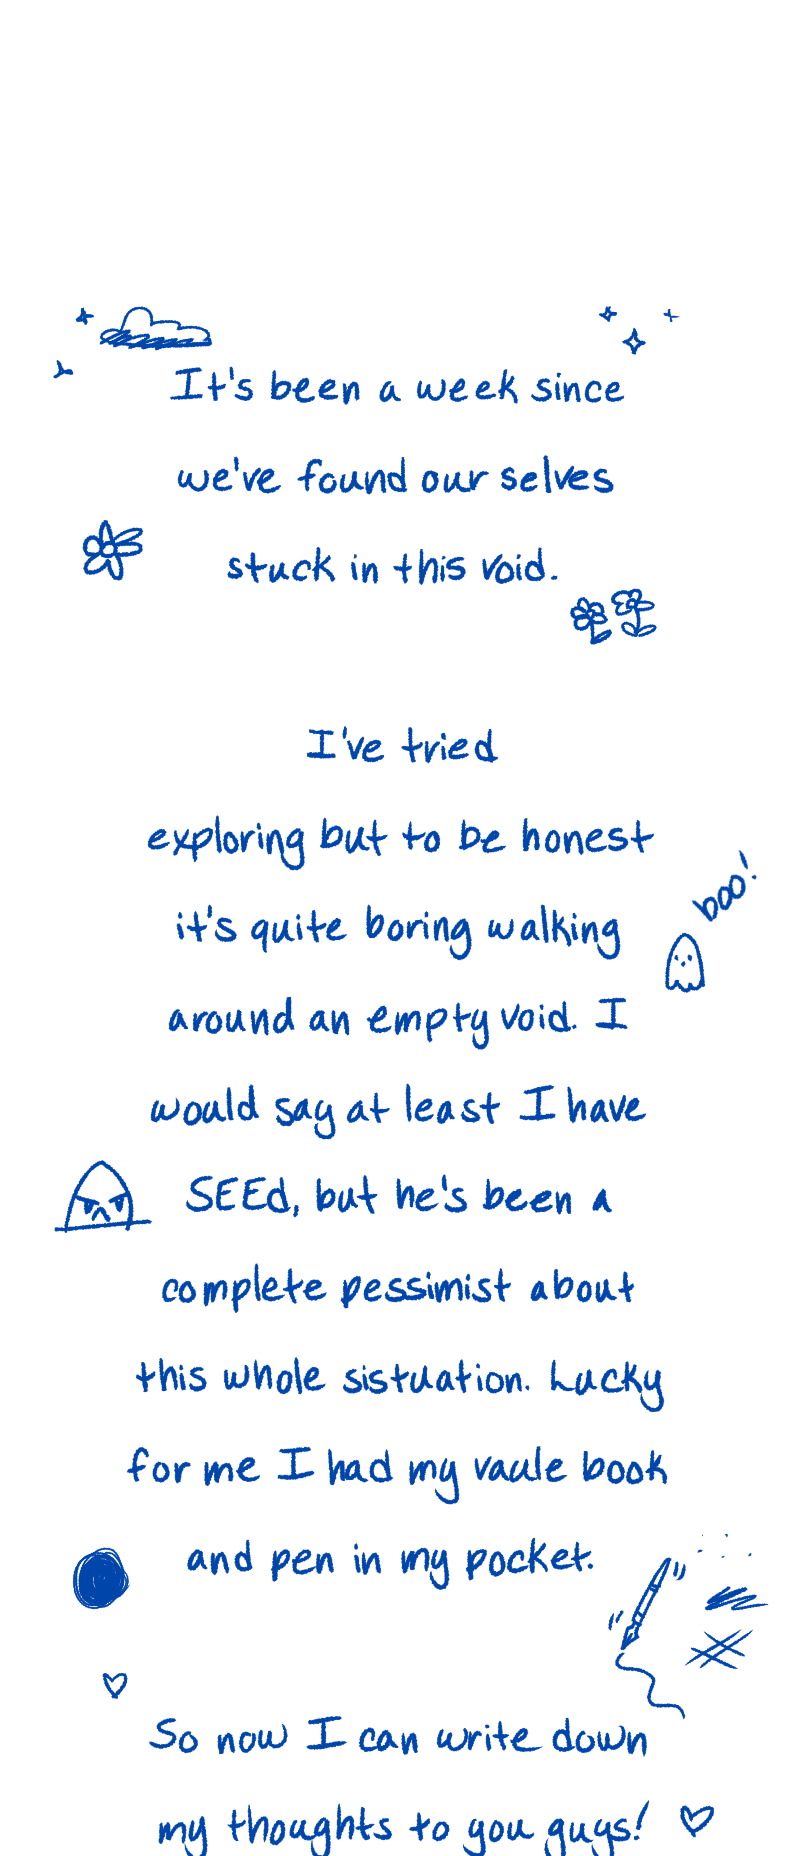 It's been a week since
we've found our selves
stuck in this void.
I've tried
exploring but to be honest
it's quite boring walking
boo!
around an empty void. I
would say at least I have
SEEd, but he's been a
complete pessimist about
this whole sistuation. Lucky
for me I had my vaule book
and pen in my pocket.
So now I can write down
my thoughts to you guys!